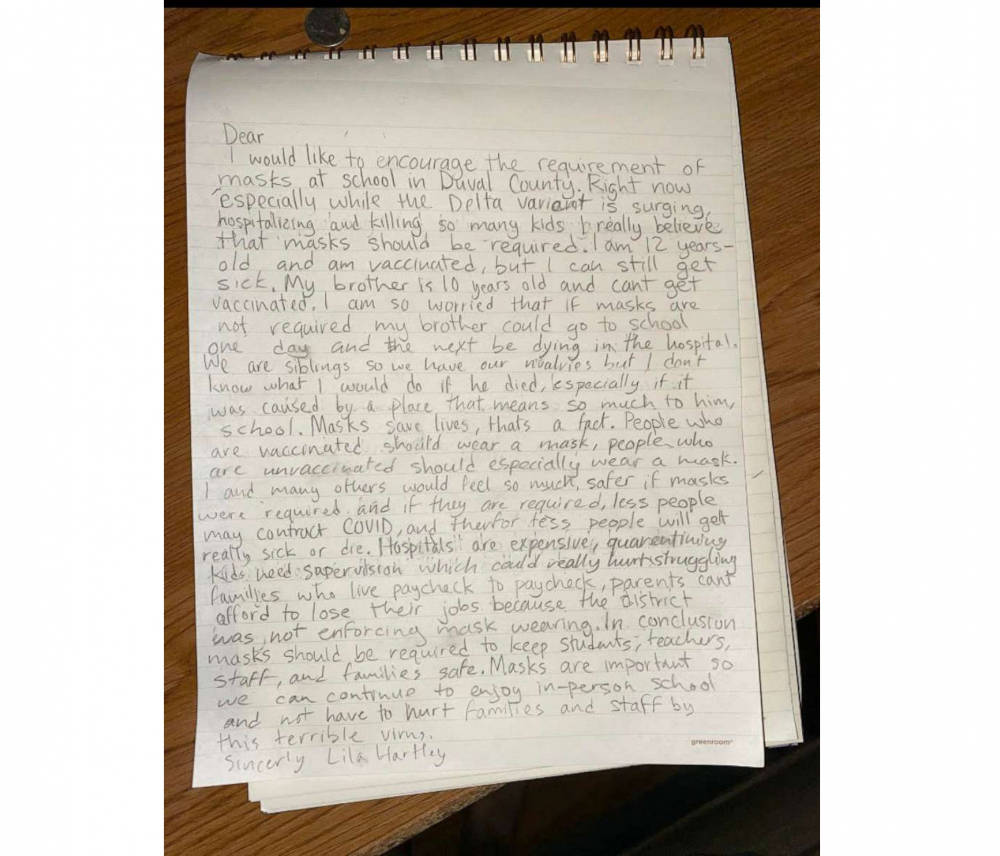 Dear
I would like to encourage the requirement of
masks at school in Duval County. Right now
especially while the Delta variant is surging,
hospitalizing and killing so many kids I really believe
that masks should be required. I am 12 years-
old and am vaccinated, but I can still get
sick. My brother is 10 years old and cant get
vaccinated. I am so worried that if masks are
not required my brother could go to school
one day and the next be dying in the hospital.
We are siblings so we have our rivalries but I don't
know what I would do if he died, especially if it
was caused by a place that means so much to him,
school. Masks save lives, thats a fact. People who
are vaccinated should wear a mask, people who
are unvaccinated should especially wear a mask.
I and many others would feel so much safer if masks
were required. and if they are required, less people
may contract COVID, and therfor less people will get
really sick or die. Hospitals are expensive, quarentining
kids need supervision which could really hurt struggling
families who live paycheck to paycheck, parents cant
afford to lose their jobs because the district
was not enforcing mask wearing. In conclusion
masks should be required to keep students, teachers,
staff, and families safe. Masks are important so
we can continue to enjoy in-person school
and not have to hurt families and staff by
this terrible virus.
Sincerly Lila Hartley
greenroom